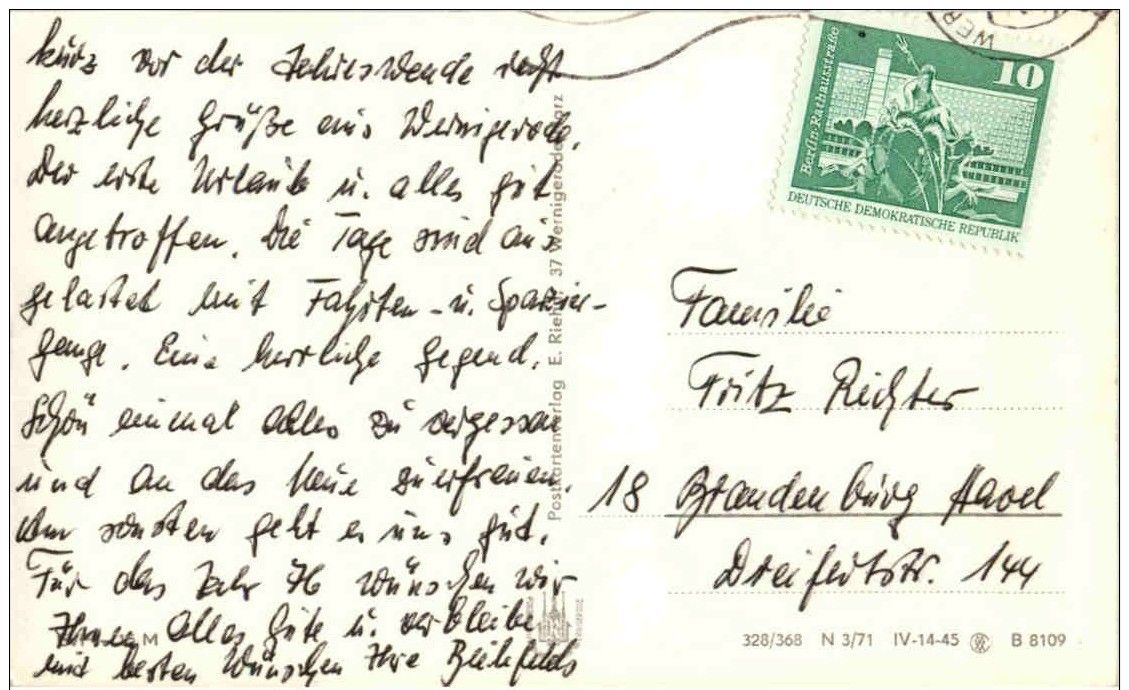 kurz vor der Jahreswende recht
herzliche Grüße aus Wernigerode.
Der erste Urlaub u. alles gut
angetroffen. Die Tage sind aus
gelastet mit Fahrten - u. Spazier-
gänge. Eine herrliche Gegend.
Schön einmal alles zu vergessen
und an das Neue zu erfreuen.
Am sonsten geht es uns gut.
Für das Jahr 76 wünschen wir
Ihnen alles Gute u. verbleibe
mit besten Wünschen Ihre Bielefelds
M
Postkartenverlag E. Riehn 37 Wernigerode Harz
WER
10
Berlin, Rathausstraße
DEUTSCHE DEMOKRATISCHE REPUBLIK
Familie
Fritz Richter
18 Brandenburg Havel
Dreifertstr. 144
328/368 N 3/71 IV-14-45 B 8109